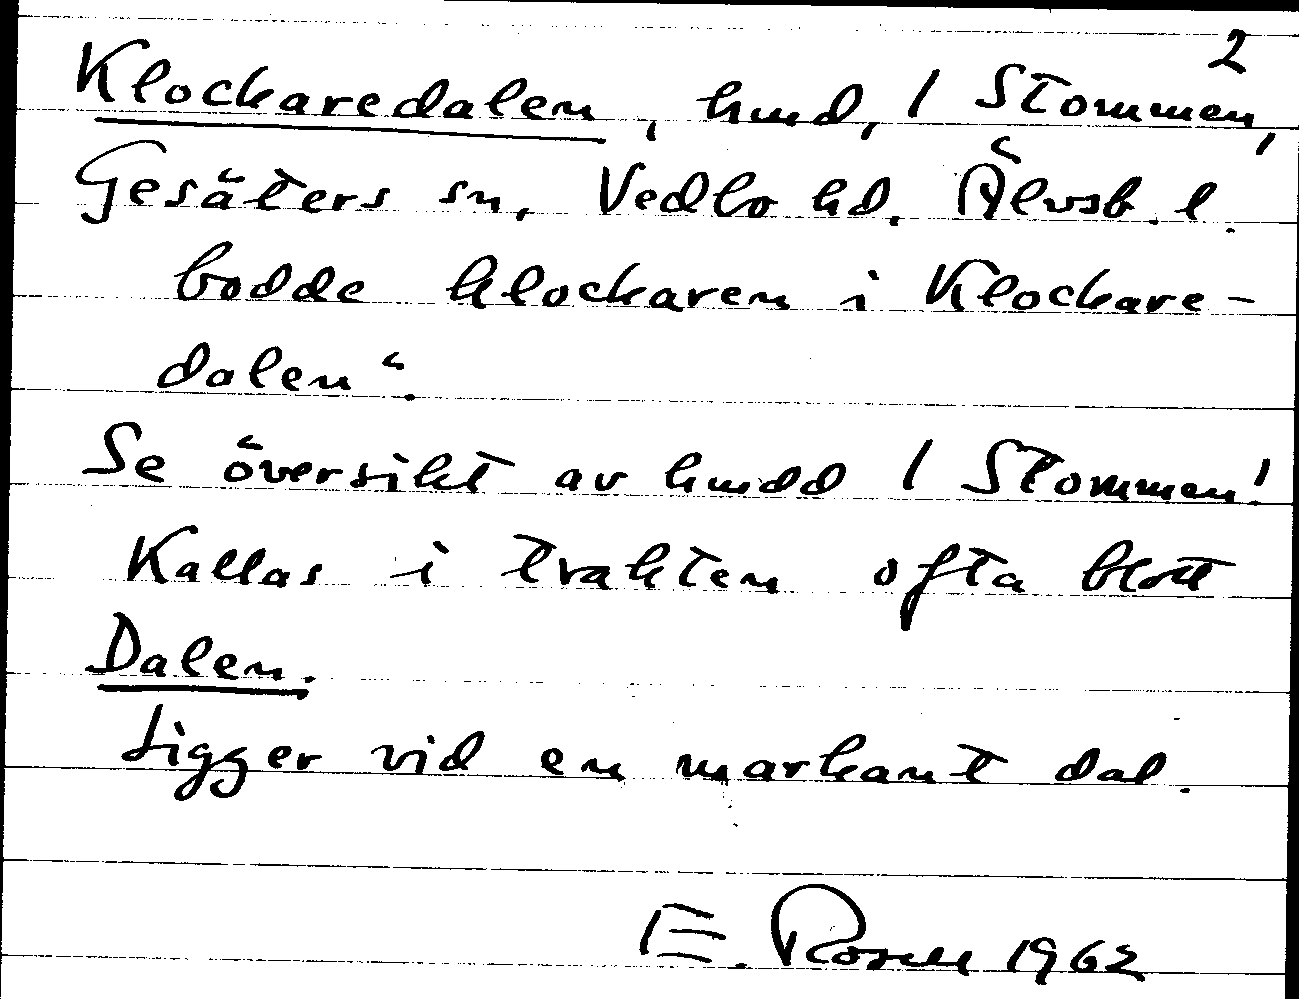 2
Klockaredalen, hmd, 1 Stommen,
Gesäters sn, Vedbo hd. Älvsb. l.
bodde klockaren i Klockare-
dalen".
Se översikt av hmdd 1 Stommen!
Kallas i trakten ofta blott
Dalen.
Ligger vid en markant dal.
E. Rosell 1962